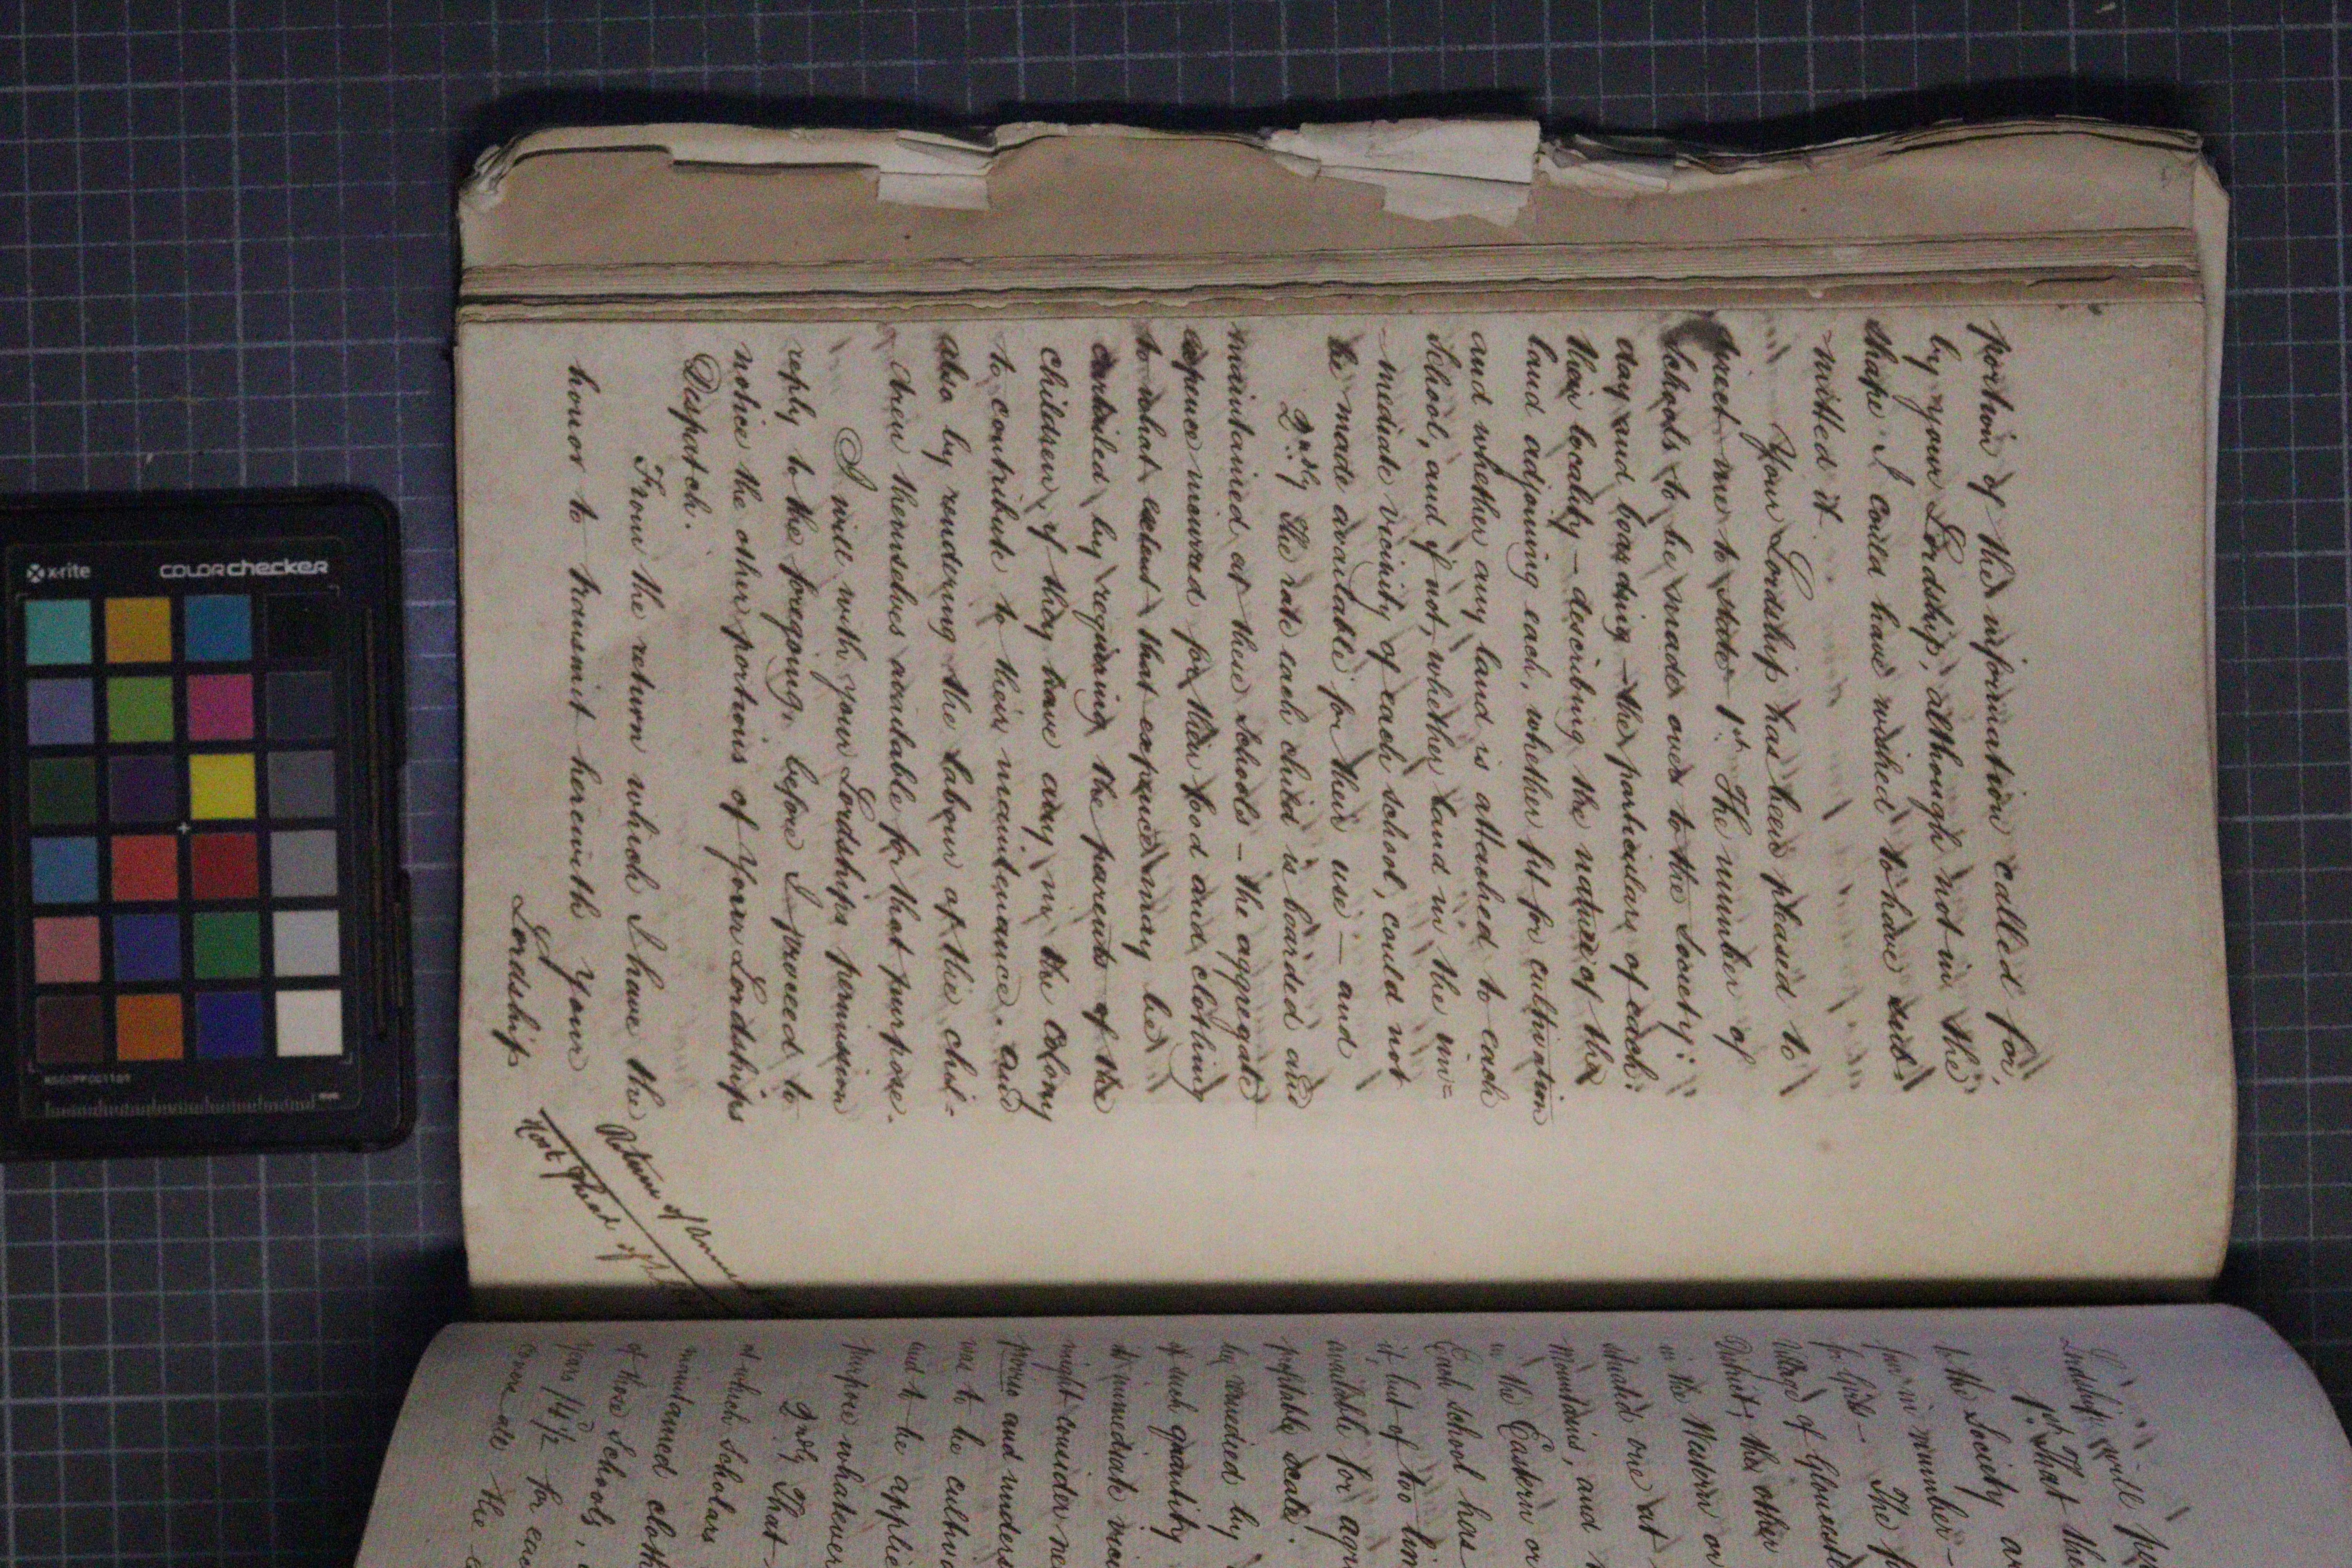 portion of the information called for,
by your Lordship, although not in the
shape I could have wished to have sub-
mitted it.
Your Lordship has been pleased to
direct me to state 1st. The number of
Schools to be made over to the Society:
day and boarding – the particulars of each:
their locality – describing the nature of the
land adjoining each, whether fit for cultivation
and whether any land is attached to each
School, and if not, whether land in the im=
mediate vicinity of each school, could not
be made available for their use – and
2ndly The rate each child is boarded and
maintained at these Schools – the aggregate
expence incurred for their food and clothing
to what extent that expence may be
curtailed by requiring the parents of the
children, if they have any, in the Colony
to contribute to their maintenance, and
also by rendering the labour of the chil-
dren themselves available for that purpose.
I will with your Lordships permission
reply to the foregoing, before I proceed to
notice the other portions of Your Lordships
Despatch.
From the return which I have the
honor to transmit herewith Your
Lordship
Return of
Lordship will
1st That the
to the Society
four in number –
for Girls – The
Village of
District; the other
in the Western or
situated one at
Mountains, and
in the Eastern or
Each school has
it, but of too
available for
profitable scale.
be remedied by
of such quantity
it immediate
might consider
proviso and
was to be
and to be
purpose whatever
2ndly That
at which Scholars
maintained
of those Schools,
for each
the
x-rite
colorchecker
mm